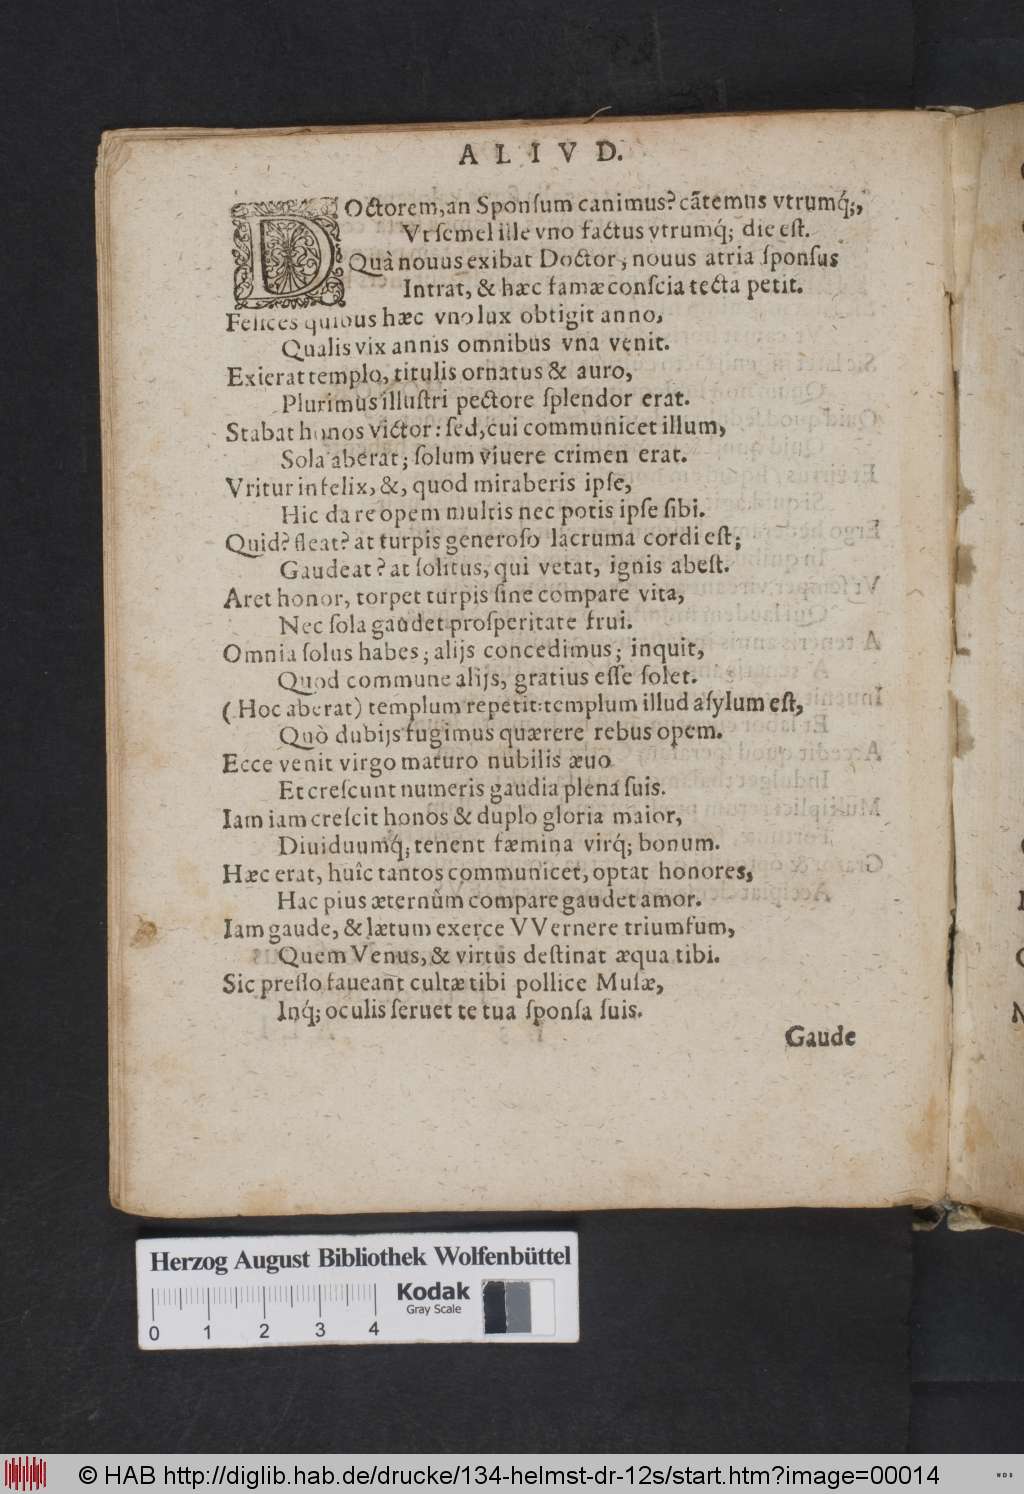 ALIVD.
DOctorem, an Sponſum canimus? cãtemus vtrumq́;,
Vt ſemel ille vno factus vtrumq́; die eſt.
Quà nouus exibat Doctor, nouus atria ſponſus
Intrat, & hæc famæ conſcia tecta petit.
Felices quibus hæc vno lux obtigit anno,
Qualis vix annis omnibus vna venit.
Exierat templo, titulis ornatus & auro,
Plurimus illuſtri pectore ſplendor erat.
Stabat honos victor: ſed, cui communicet illum,
Sola aberat; ſolum viuere crimen erat.
Vritur infelix, &, quod miraberis ipſe,
Hic dare opem multis nec potis ipſe ſibi.
Quid? fleat? at turpis generoſo lacruma cordi eſt;
Gaudeat? at ſolitus, qui vetat, ignis abeſt.
Aret honor, torpet turpis ſine compare vita,
Nec ſola gaudet proſperitate frui.
Omnia ſolus habes; alijs concedimus; inquit,
Quod commune alijs, gratius eſſe ſolet.
(Hoc aberat) templum repetit: templum illud aſylum eſt,
Quò dubijs fugimus quærere rebus opem.
Ecce venit virgo maturo nubilis æuo
Et creſcunt numeris gaudia plena ſuis.
Iam iam creſcit honos & duplo gloria maior,
Diuiduumq́; tenent fæmina virq́; bonum.
Hæc erat, huîc tantos communicet, optat honores,
Hac pius æternùm compare gaudet amor.
Iam gaude, & lætum exerce VVernere triumfum,
Quem Venus, & virtus deſtinat æqua tibi.
Sic preſſo faueant cultæ tibi pollice Muſæ,
Inq́; oculis ſeruet te tua ſponſa ſuis.
Gaude
Herzog August Bibliothek Wolfenbüttel
Kodak
Gray Scale
0 1 2 3 4
© HAB http://diglib.hab.de/drucke/134-helmst-dr-12s/start.htm?image=00014